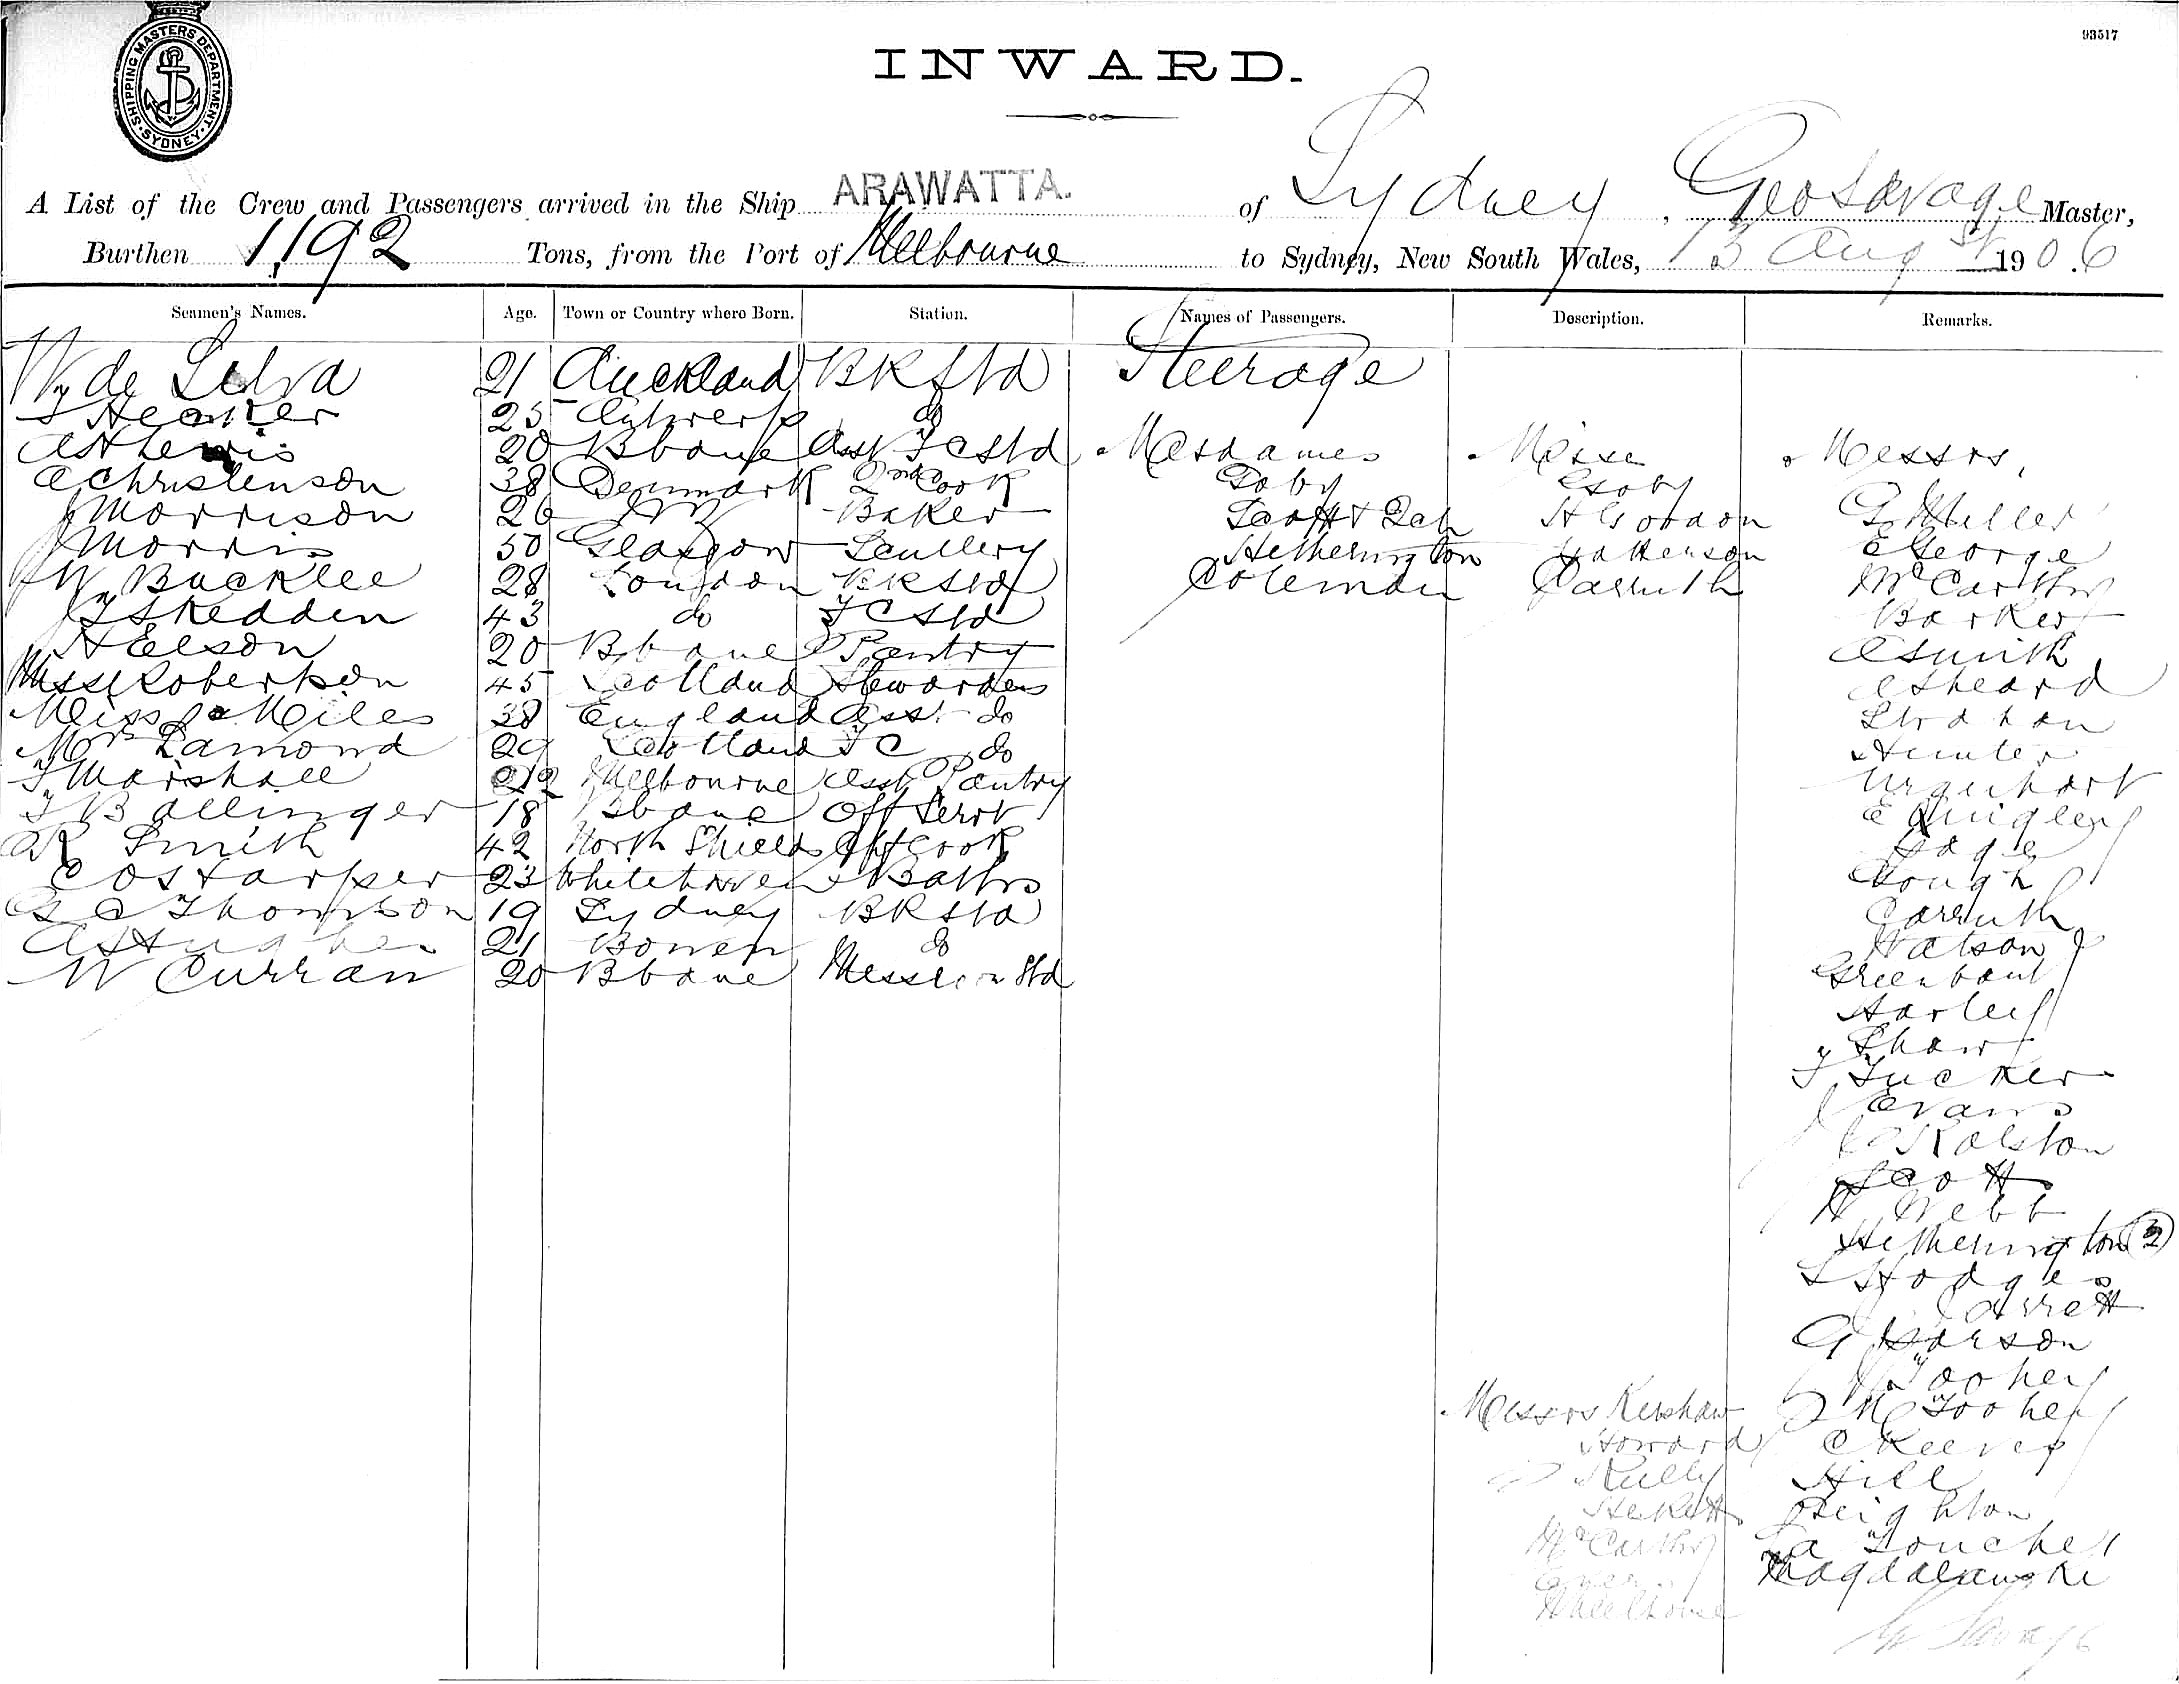 93517
SHIPPING MASTERS DEPARTMENT · SYDNEY ·
INWARD.
A List of the Crew and Passengers arrived in the Ship ARAWATTA. of Sydney, Geo Savage Master,
Burthen 1,192 Tons, from the Port of Melbourne to Sydney, New South Wales, 13 Aug 1906
Seamen's Names. Age. Town or Country where Born. Station. Names of Passengers. Description. Remarks.
Wm de Silva 21 Auckland BK Std Steerage
25 Antwerp do
A H Lewis 20 Bbane Asst FC Std Mesdames Misse Messrs,
C Christenson 38 Denmark 2nd Cook Goby Goby
J Morrison 26 NZ Baker Scott & H Gordon G Miller
J Morris 50 Glasgow Scullery Hetherington Patterson E George
Wm Bucklee 28 London BK Std Coleman Carruth McCarthy
J Skedden 43 do FC Std Barker
H Elson 20 Bbane Pantry C Smith
Miss Robertson 45 Scotland Stewardess C Sheard
Miss Miles 38 England Asst do Strahan
Mrs Lamond 29 Scotland FC do Hunter
T Marshall 22 Melbourne Asst Pantry Urquhart
J Ballinger 18 Bbane Off Servt E Quigley
R Smith 42 North Shields Cook Page
C Ostarper 23 Whitehaven Baths Clough
G C Thompson 19 Sydney BK Std Carruth
A Hughes 21 Bowen do Watson
W Curran 20 Bbane Messroom Std Greenbant
Harley
J Shaw
J Tucker
J Evans
Ralston
Scott
H Webb
Hetherington (2)
L Hodges
Garrett
G Parson
J Toohey
Messrs Kershaw M Toohey
Howard C Keeves
Kelly Hill
Hackett Leighton
McCarthy La Touche
Magdalanski
G Savage